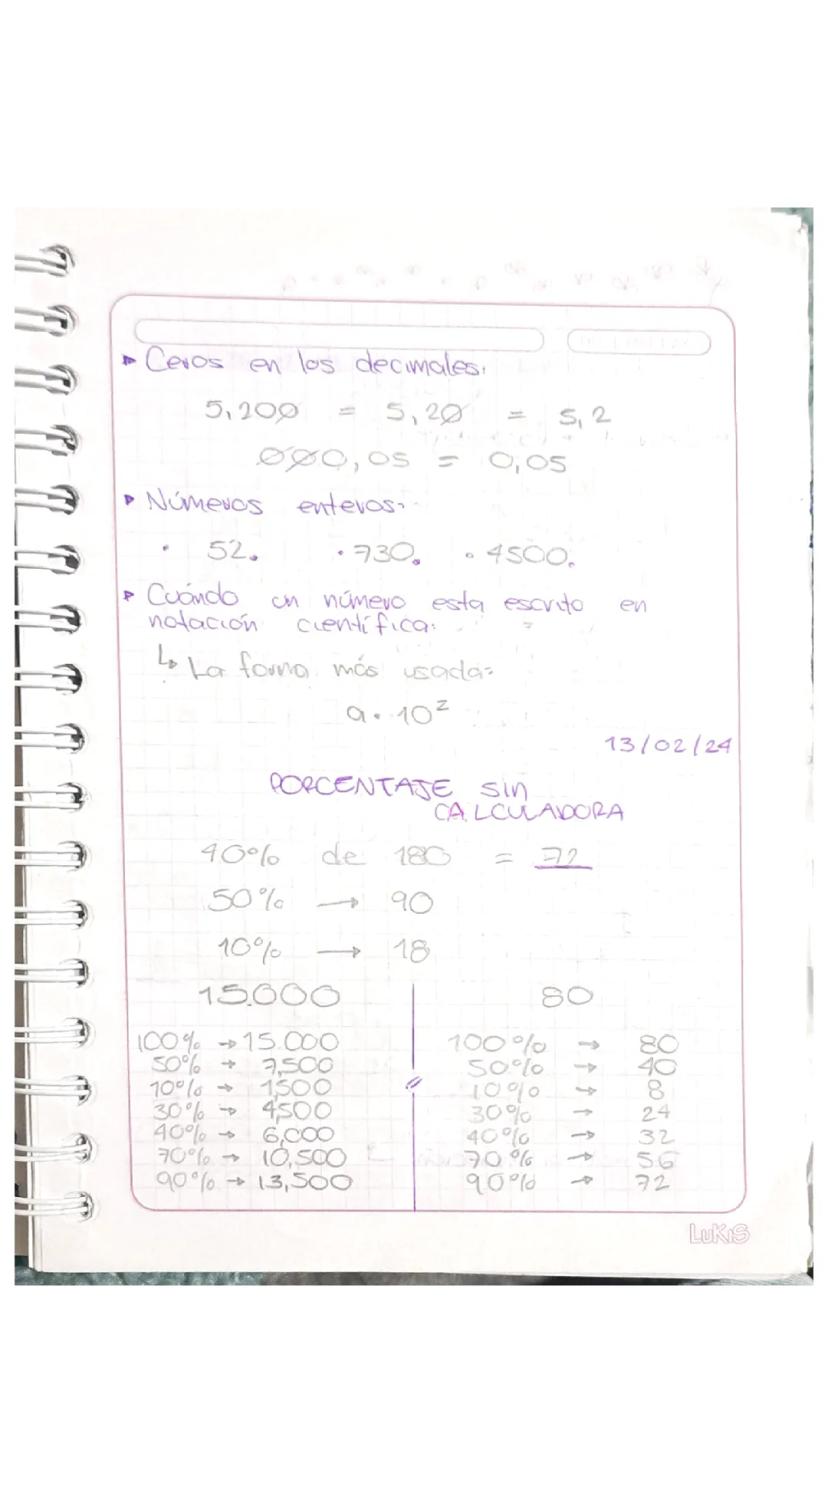 ▶ Ceros en los decimales:
5,200 = 5,20 = 5,2
000,05 = 0,05
▶ Números enteros:
· 52. · 730. · 4500.
▶ Cuándo un número esta escrito en
notación científica:
↳ La forma más usada:
a · 10²
13/02/24
PORCENTAJE sin
CALCULADORA
40% de 180 = 72
50% → 90
10% → 18
15.000
100% → 15.000
50% → 7,500
10% → 1,500
30% → 4,500
40% → 6,000
70% → 10,500
90% → 13,500
80
100% → 80
50% → 40
10% → 8
30% → 24
40% → 32
70% → 56
90% → 72
LUKIS